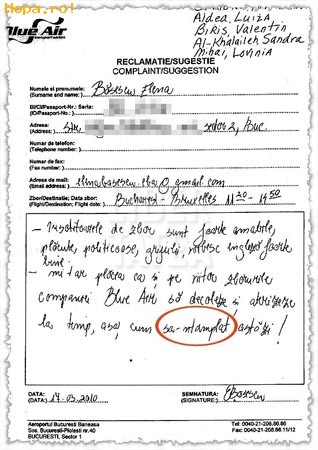 Hopa.ro!
Blue Air
Aldea, Luiza,
Biris, Valentin
Al-Khalaileh Sandra
Mihai, Lavinia
RECLAMATIE/SUGESTIE
COMPLAINT/SUGGESTION
Numele si prenumele: Băsescu Elena
(Surname and name):
BI/CI/Pasaport-Nr.: Seria:
(ID/Passport-No.):
Adresa: Str. sector 2, Buc.
(Address):
Numar de telefon:
(Telephone number):
Numar de fax:
(Fax number):
Adresa de mail: elenabasescu.eba@gmail.com
(Email address):
Zbor/Destinatie; Data zbor: Bucharest - Bruxelles 11:20 - 14:50
(Flight/Destination; Flight date):
- Insotitoarele de zbor sunt foarte amabile,
plăcute, politicoase, grijulii, vorbesc engleză foarte
bine.
- mi-ar plăcea ca și pe viitor zborurile
companiei Blue Air să decoleze și aterizeze
la timp, asa cum sa-ntamplat astăzi!
DATA: 14.03.2010
(DATA):
SEMNATURA: EBasescu
(SIGNATURE):
Aeroportul Bucuresti Baneasa
Sos. Bucuresti-Ploiesti nr.40
BUCURESTI, Sector 1
Tel: 0040-21-208.86.86
Fax: 0040-21-208.86.11/12